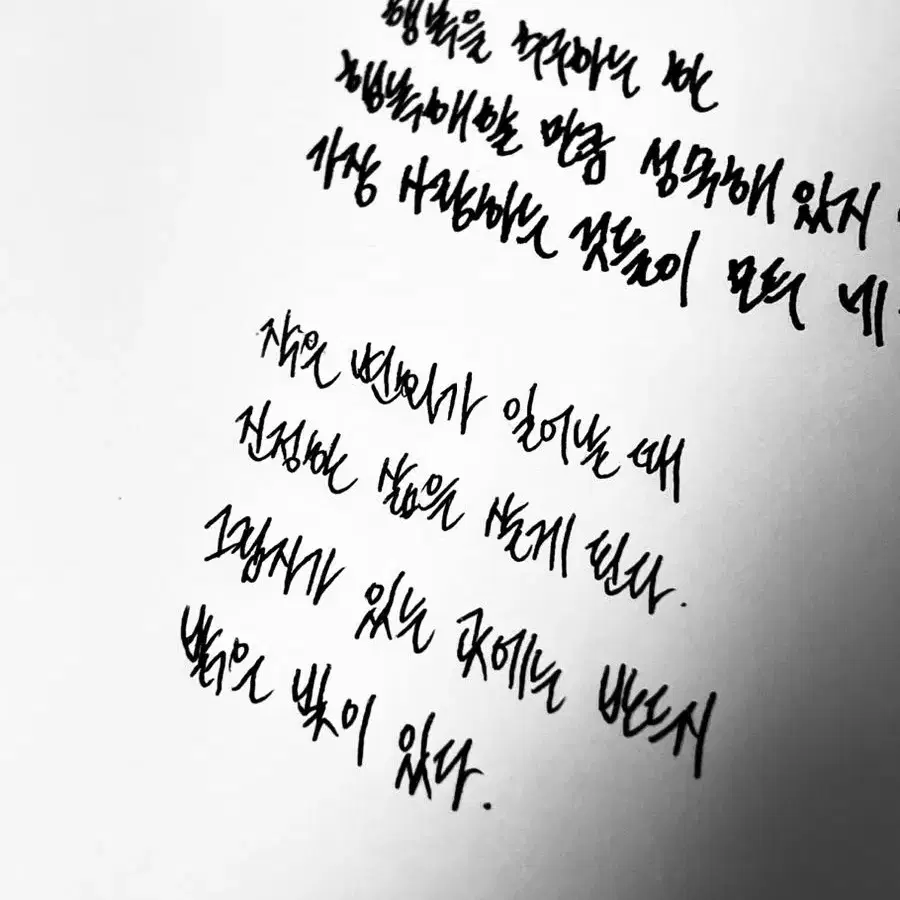 행복을 추구하는 한
행복해질 만큼 성숙해 있지
가장 사랑하는 것들이 모두 네
작은 변화가 일어날 때
진정한 삶을 살게 된다.
그림자가 있는 곳에는 반드시
밝은 빛이 있다.